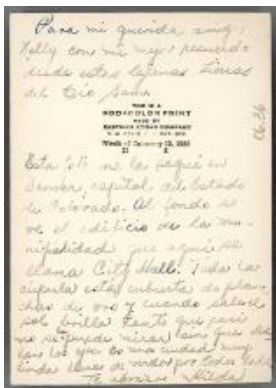 Para mi querida amiga
Nelly con mi mejor recuerdo
desde estas lejanas tierras
del Tío Sam.
THIS IS A
KODACOLOR PRINT
MADE BY
EASTMAN KODAK COMPANY
Week of January
Esta foto me la saqué en
Denver, capital del Estado
de Colorado. Al fondo se
ve el edificio de la mu-
nicipalidad que aquí se
llama City Hall. Toda la
cúpula está cubierta de plan-
chas de oro y cuando sale el
sol brilla tanto que casi
no se puede mirar
es una ciudad muy
linda llena de verdor por todos lados
Te abraza Hilda